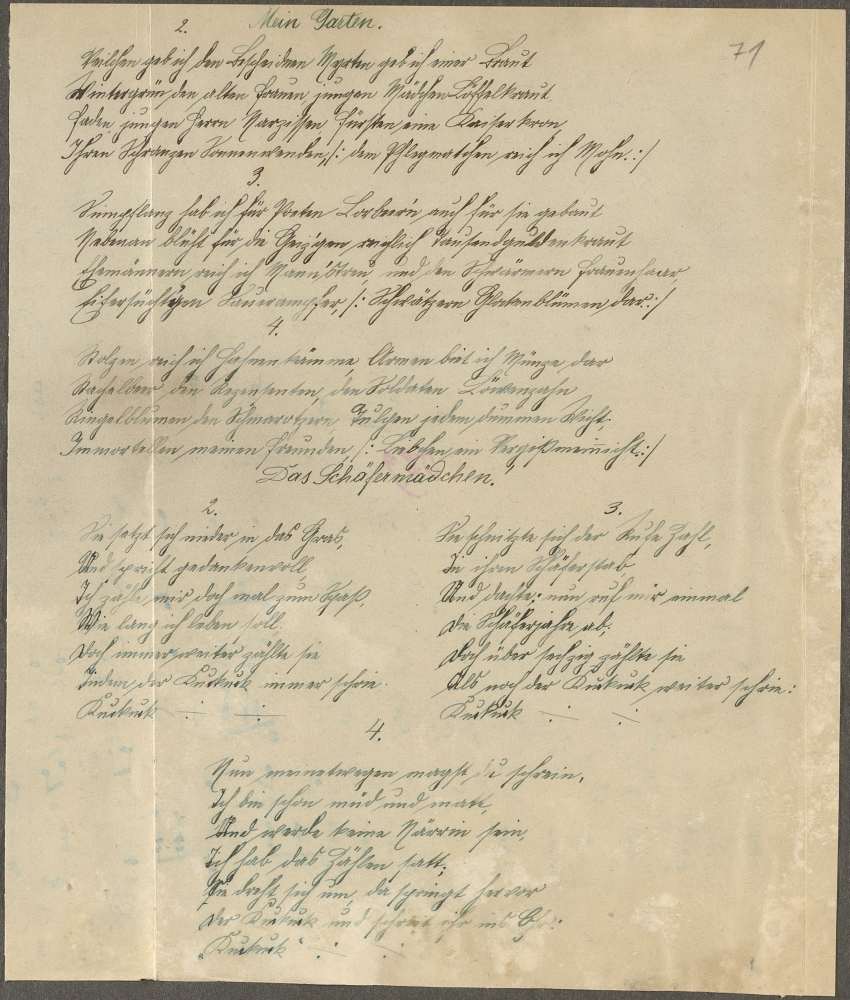 Mein Garten.
71
2.
Veilchen geb ich den Bescheidnen Myrten geb ich einer Braut
Wintergrün den alten Frauen, jungen Mädchen Löffelkraut
Faden jungen Herrn Narzissen Fürsten eine Kaiserkron,
Ihren Schranzen Sonnenwenden, /: dem Phlegmatschen reich ich Mohn. :/
3.
hab ich für Poeten Lorbeer'n auch für sie gebaut
Nebenan blüht für die Geiz'gen reichlich Tausendguldenkraut
Ehemännern reich ich Mannstreu, und den Schwärmern Frauenhaar,
Eifersüchtigen Sauerampfer, /: Schwätzern dar. :/
4.
Stolzen reich ich Hahnenkämme, Armen biet ich Münze dar
Stachelbeer den Rezensenten, den Soldaten Löwenzahn
Ringelblumen den Schmarotzern Tulpen jedem dummen Wicht.
Immortellen meinen Freunden, /: Liebchen ein Vergißmeinnicht. :/
Das Schäfermädchen.
2.
Sie setzt sich nieder in das Gras,
Und spricht gedankenvoll,
Ich zähle mir doch mal zum Spaß,
Wie lang ich leben soll.
Doch immer weiter zählte sie
Indem der Kuckuck immer schrie.
Kuckuck ÷ ÷
3.
Sie schnitzte sich der Rufe Zahl,
In ihren Schäferstab
Und dachte: nun ruf mir einmal
Die Schäferjahre ab;
Doch über sechzig zählte sie
Als noch der Kuckuck weiter schrie:
Kuckuck ÷ ÷
4.
Nun meinetwegen magst du schrein,
Ich bin schon müd und matt,
Und werde keine Närrin sein,
Ich hab das Zählen satt;
Sie dreht sich um, da springt hervor
Der Kuckuck und schreit ihr ins Ohr:
„Kuckuck" ÷ ÷